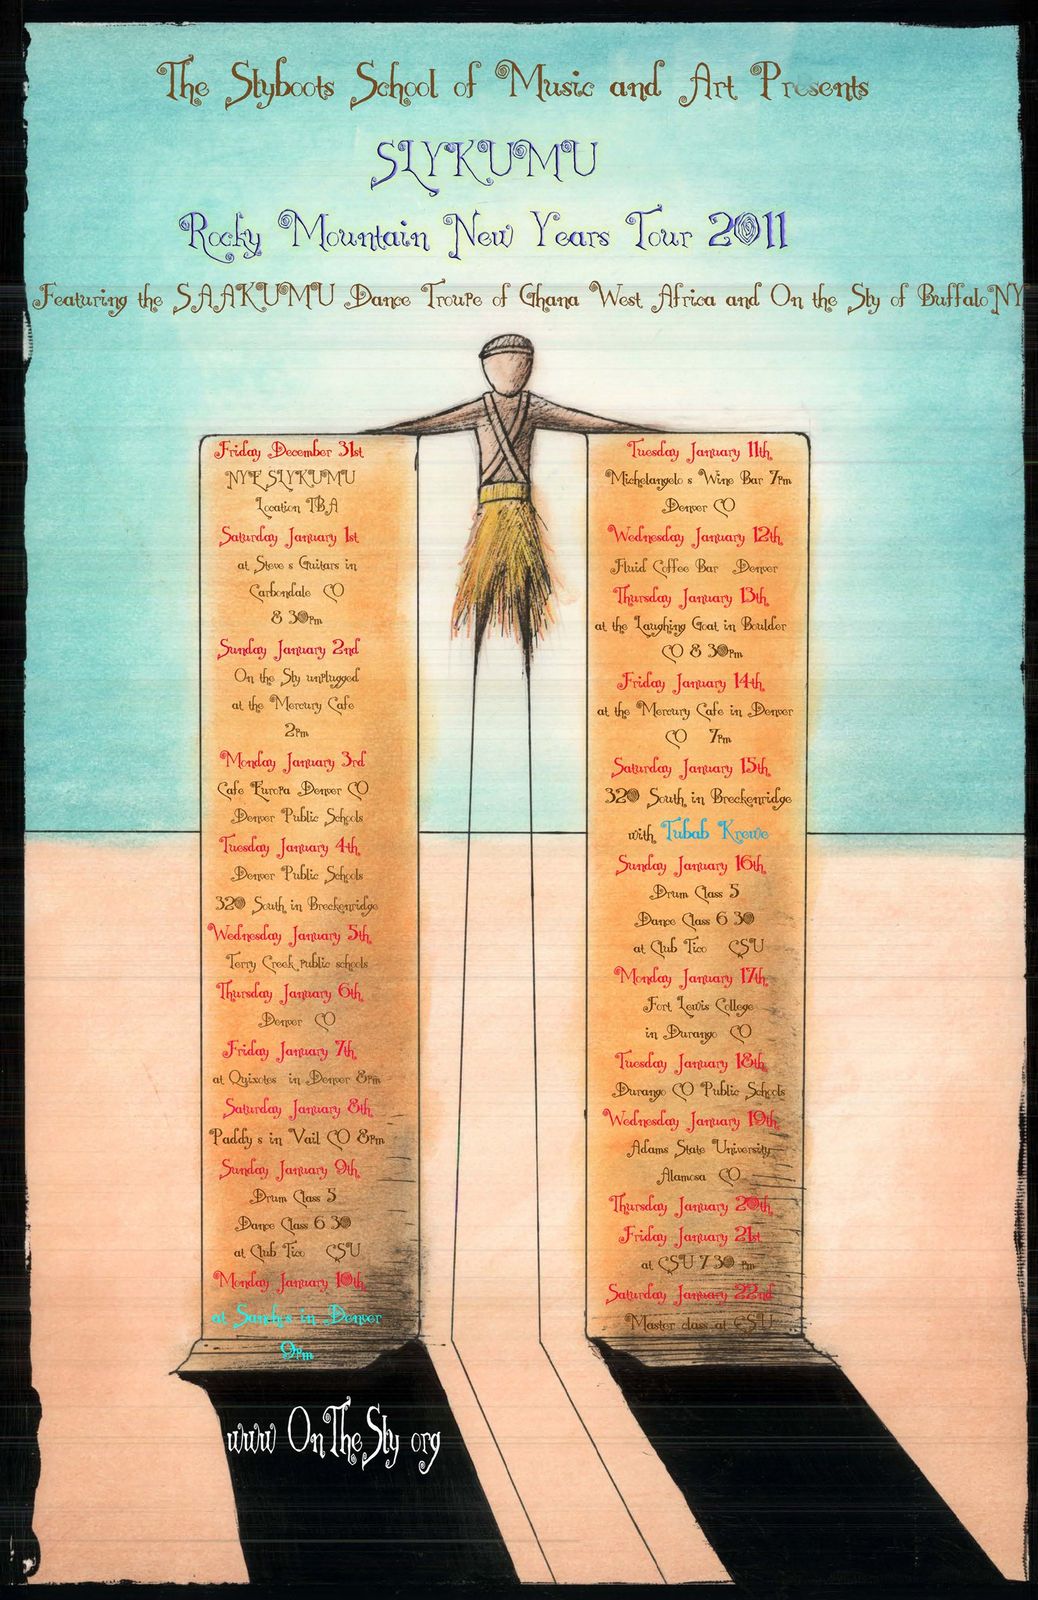 The Slyboots School of Music and Art Presents
SLYKUMU
Rocky Mountain New Years Tour 2011
Featuring the SAAKUMU Dance Troupe of Ghana West Africa and On the Sly of Buffalo NY
Friday December 31st
NYE SLYKUMU
Location TBA
Saturday January 1st
at Steve s Guitars in
Carbondale CO
8 30pm
Sunday January 2nd
On the Sly unplugged
at the Mercury Cafe
2pm
Monday January 3rd
Cafe Europa Denver CO
Denver Public Schools
Tuesday January 4th
Denver Public Schools
320 South in Breckenridge
Wednesday January 5th
Terry Creek public schools
Thursday January 6th
Denver CO
Friday January 7th
at Quixotes in Denver 8pm
Saturday January 8th
Paddy s in Vail CO 8pm
Sunday January 9th
Drum Class 5
Dance Class 6 30
at Club Tico CSU
Monday January 10th
at Sancho's in Denver
9pm
Tuesday January 11th
Michelangelo s Wine Bar 7pm
Denver CO
Wednesday January 12th
Fluid Coffee Bar Denver
Thursday January 13th
at the Laughing Goat in Boulder
CO 8 30pm
Friday January 14th
at the Mercury Cafe in Denver
CO 7pm
Saturday January 15th
320 South in Breckenridge
with Tubab Krewe
Sunday January 16th
Drum Class 5
Dance Class 6 30
at Club Tico CSU
Monday January 17th
Fort Lewis College
in Durango CO
Tuesday January 18th
Durango CO Public Schools
Wednesday January 19th
Adams State University
Alamosa CO
Thursday January 20th
Friday January 21st
at CSU 7 30 pm
Saturday January 22nd
Master class at CSU
www OnTheSly org